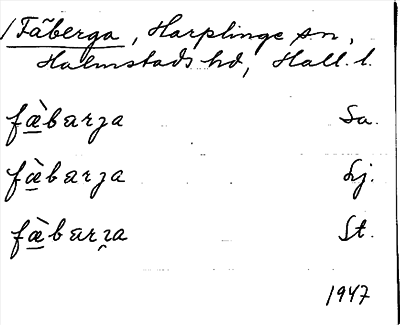 /Fäberga, Harplinge sn,
Halmstads hd, Hall. l.
fæ̀bærga Sa.
fæ̀bærga Lj.
fæ̀bærga St.
1947